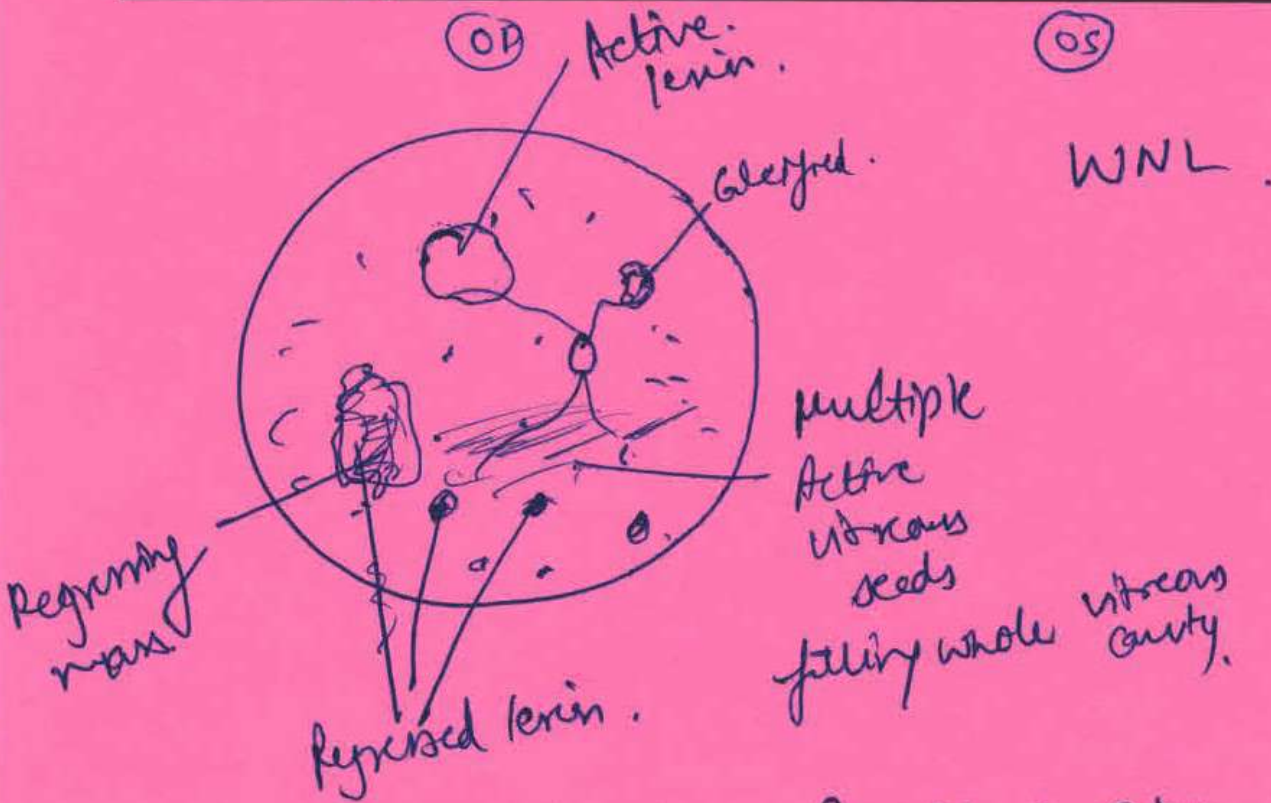 OD
OS
Active
lesion.
Calcified.
WNL.
Multiple
Active
vitreous
seeds
filling whole vitreous
cavity.
Regressing
mass
Regressed lesion.